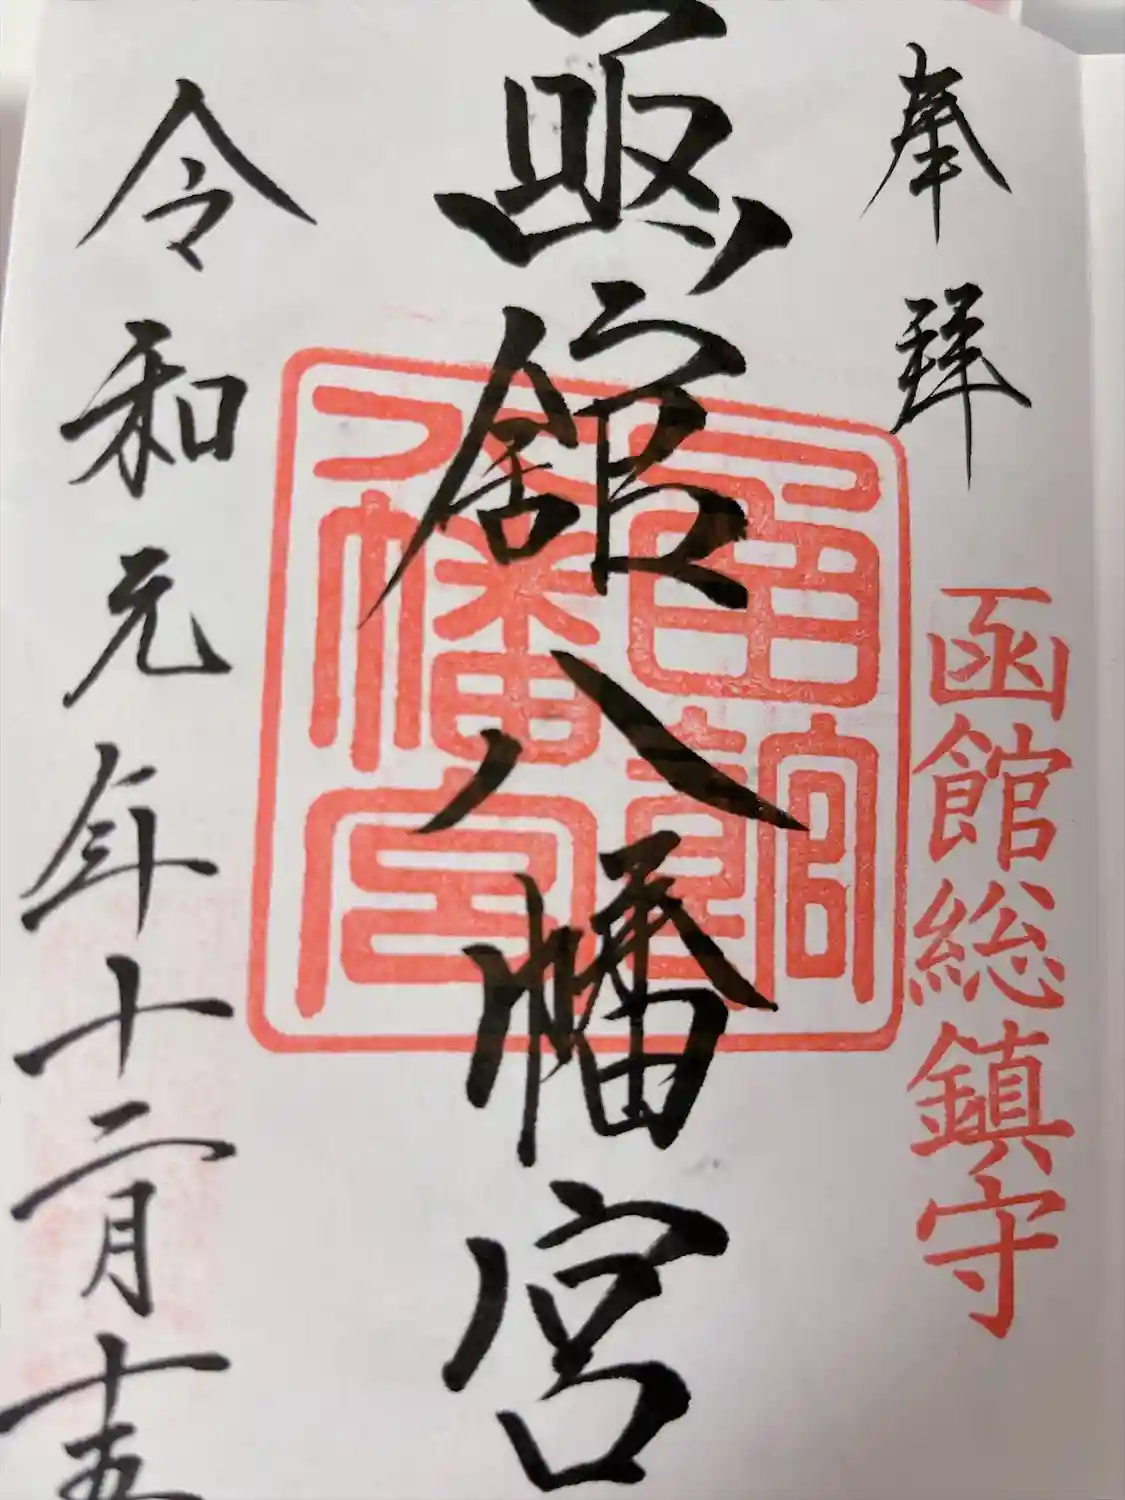 奉拜
函館総鎮守
函館八幡宮
函館八幡宮
令和元年十二月十五